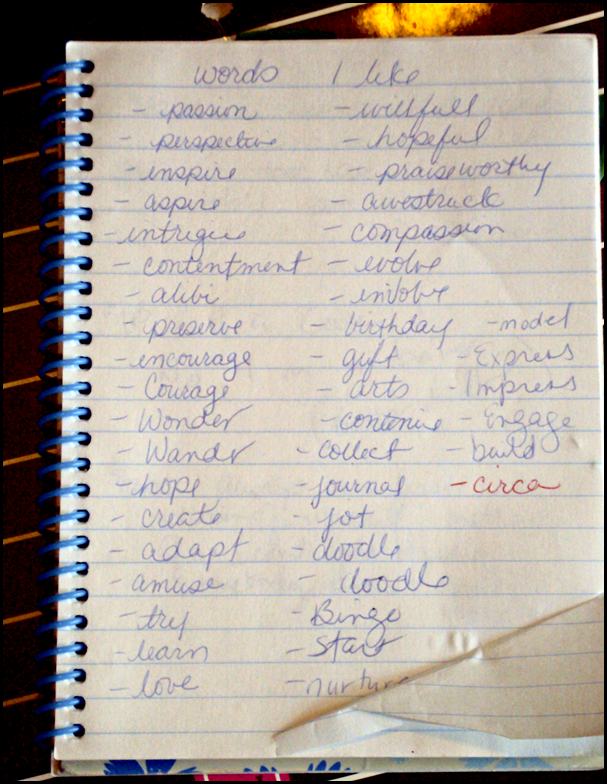 words I like
- passion - willfull
- perspective - hopeful
- inspire - praiseworthy
- aspire - awestruck
- intrigue - compassion
- contentment - evolve
- alibi - involve
- preserve - birthday - model
- encourage - gift - Express
- Courage - arts - Impress
- Wonder - contenie - Engage
- Wander - Collect - build
- hope - journal - circa
- create - jot
- adapt - doodle
- amuse - doodle
- try - Bingo
- learn - Start
- love - nurture